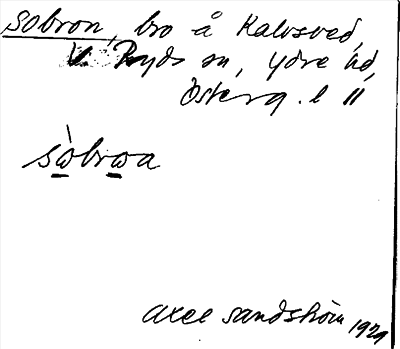 Sobron, bro å Kalvsved,
V. Ryds sn, Ydre hd,
Österg. l
sòbrωa
Axel Sandström 1929